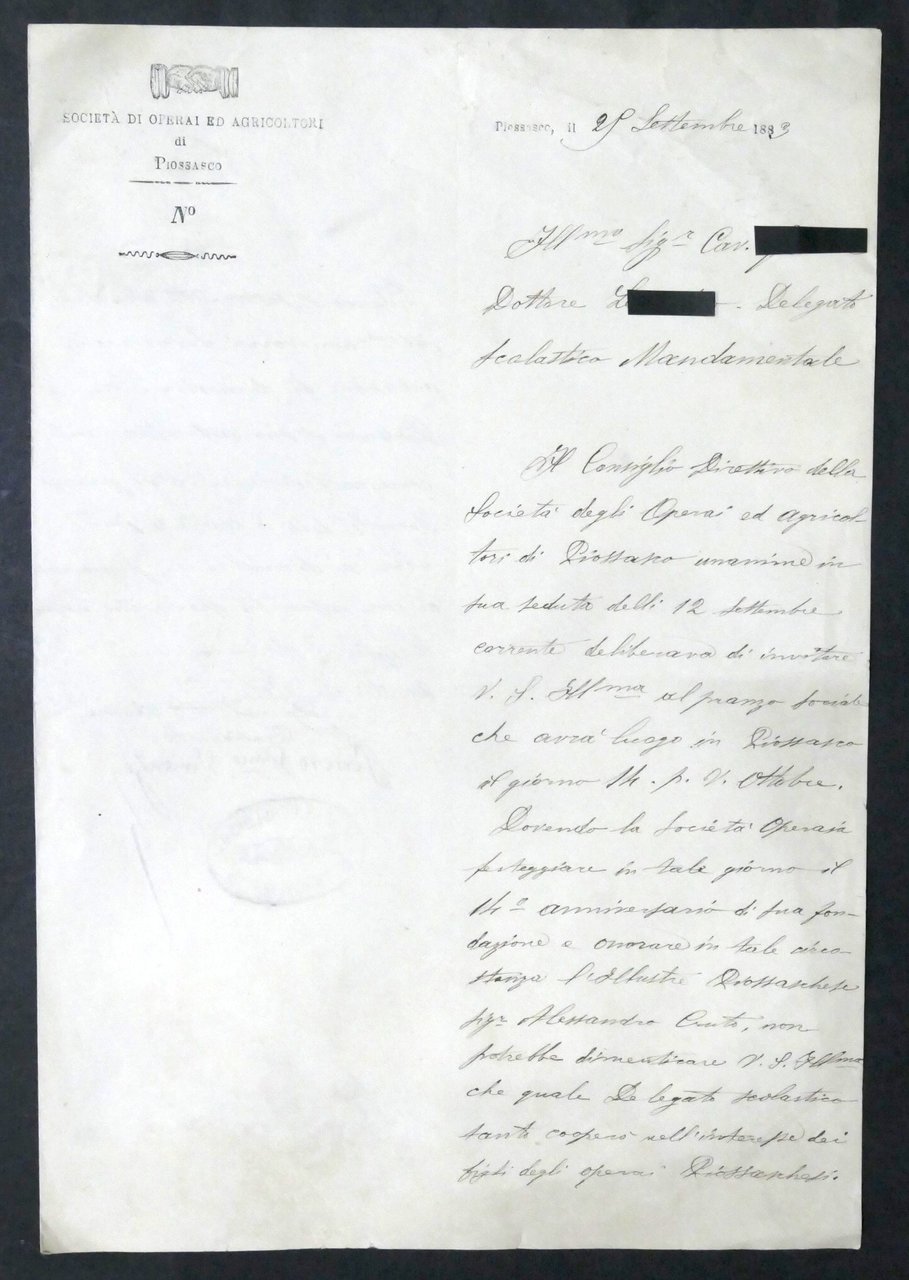 SOCIETÀ DI OPERAI ED AGRICOLTORI
di
PIOSSASCO
Nº
Piossasco, il 25 Settembre 1883
Ill.mo Sig.r Cav.
Dottore Delegato
Scolastico Mandamentale
Il Consiglio Direttivo della
Società degli Operai ed Agricol-
tori di Piossasco unanime in
sua seduta delli 12 Settembre
corrente deliberava di invitare
V. S. Ill.ma al pranzo sociale
che avrà luogo in Piossasco
il giorno 14. p. v. Ottobre.
Dovendo la Società Operaia
festeggiare in tale giorno il
14º anniversario di sua fon-
dazione e onorare in tale circo-
stanza l'Illustre Piossaschese
Sig.r Alessandro Cruto, non
potrebbe dimenticare V. S. Ill.ma
che quale Delegato Scolastico
tanto cooperò nell'interesse dei
figli degli operai Piossaschesi.